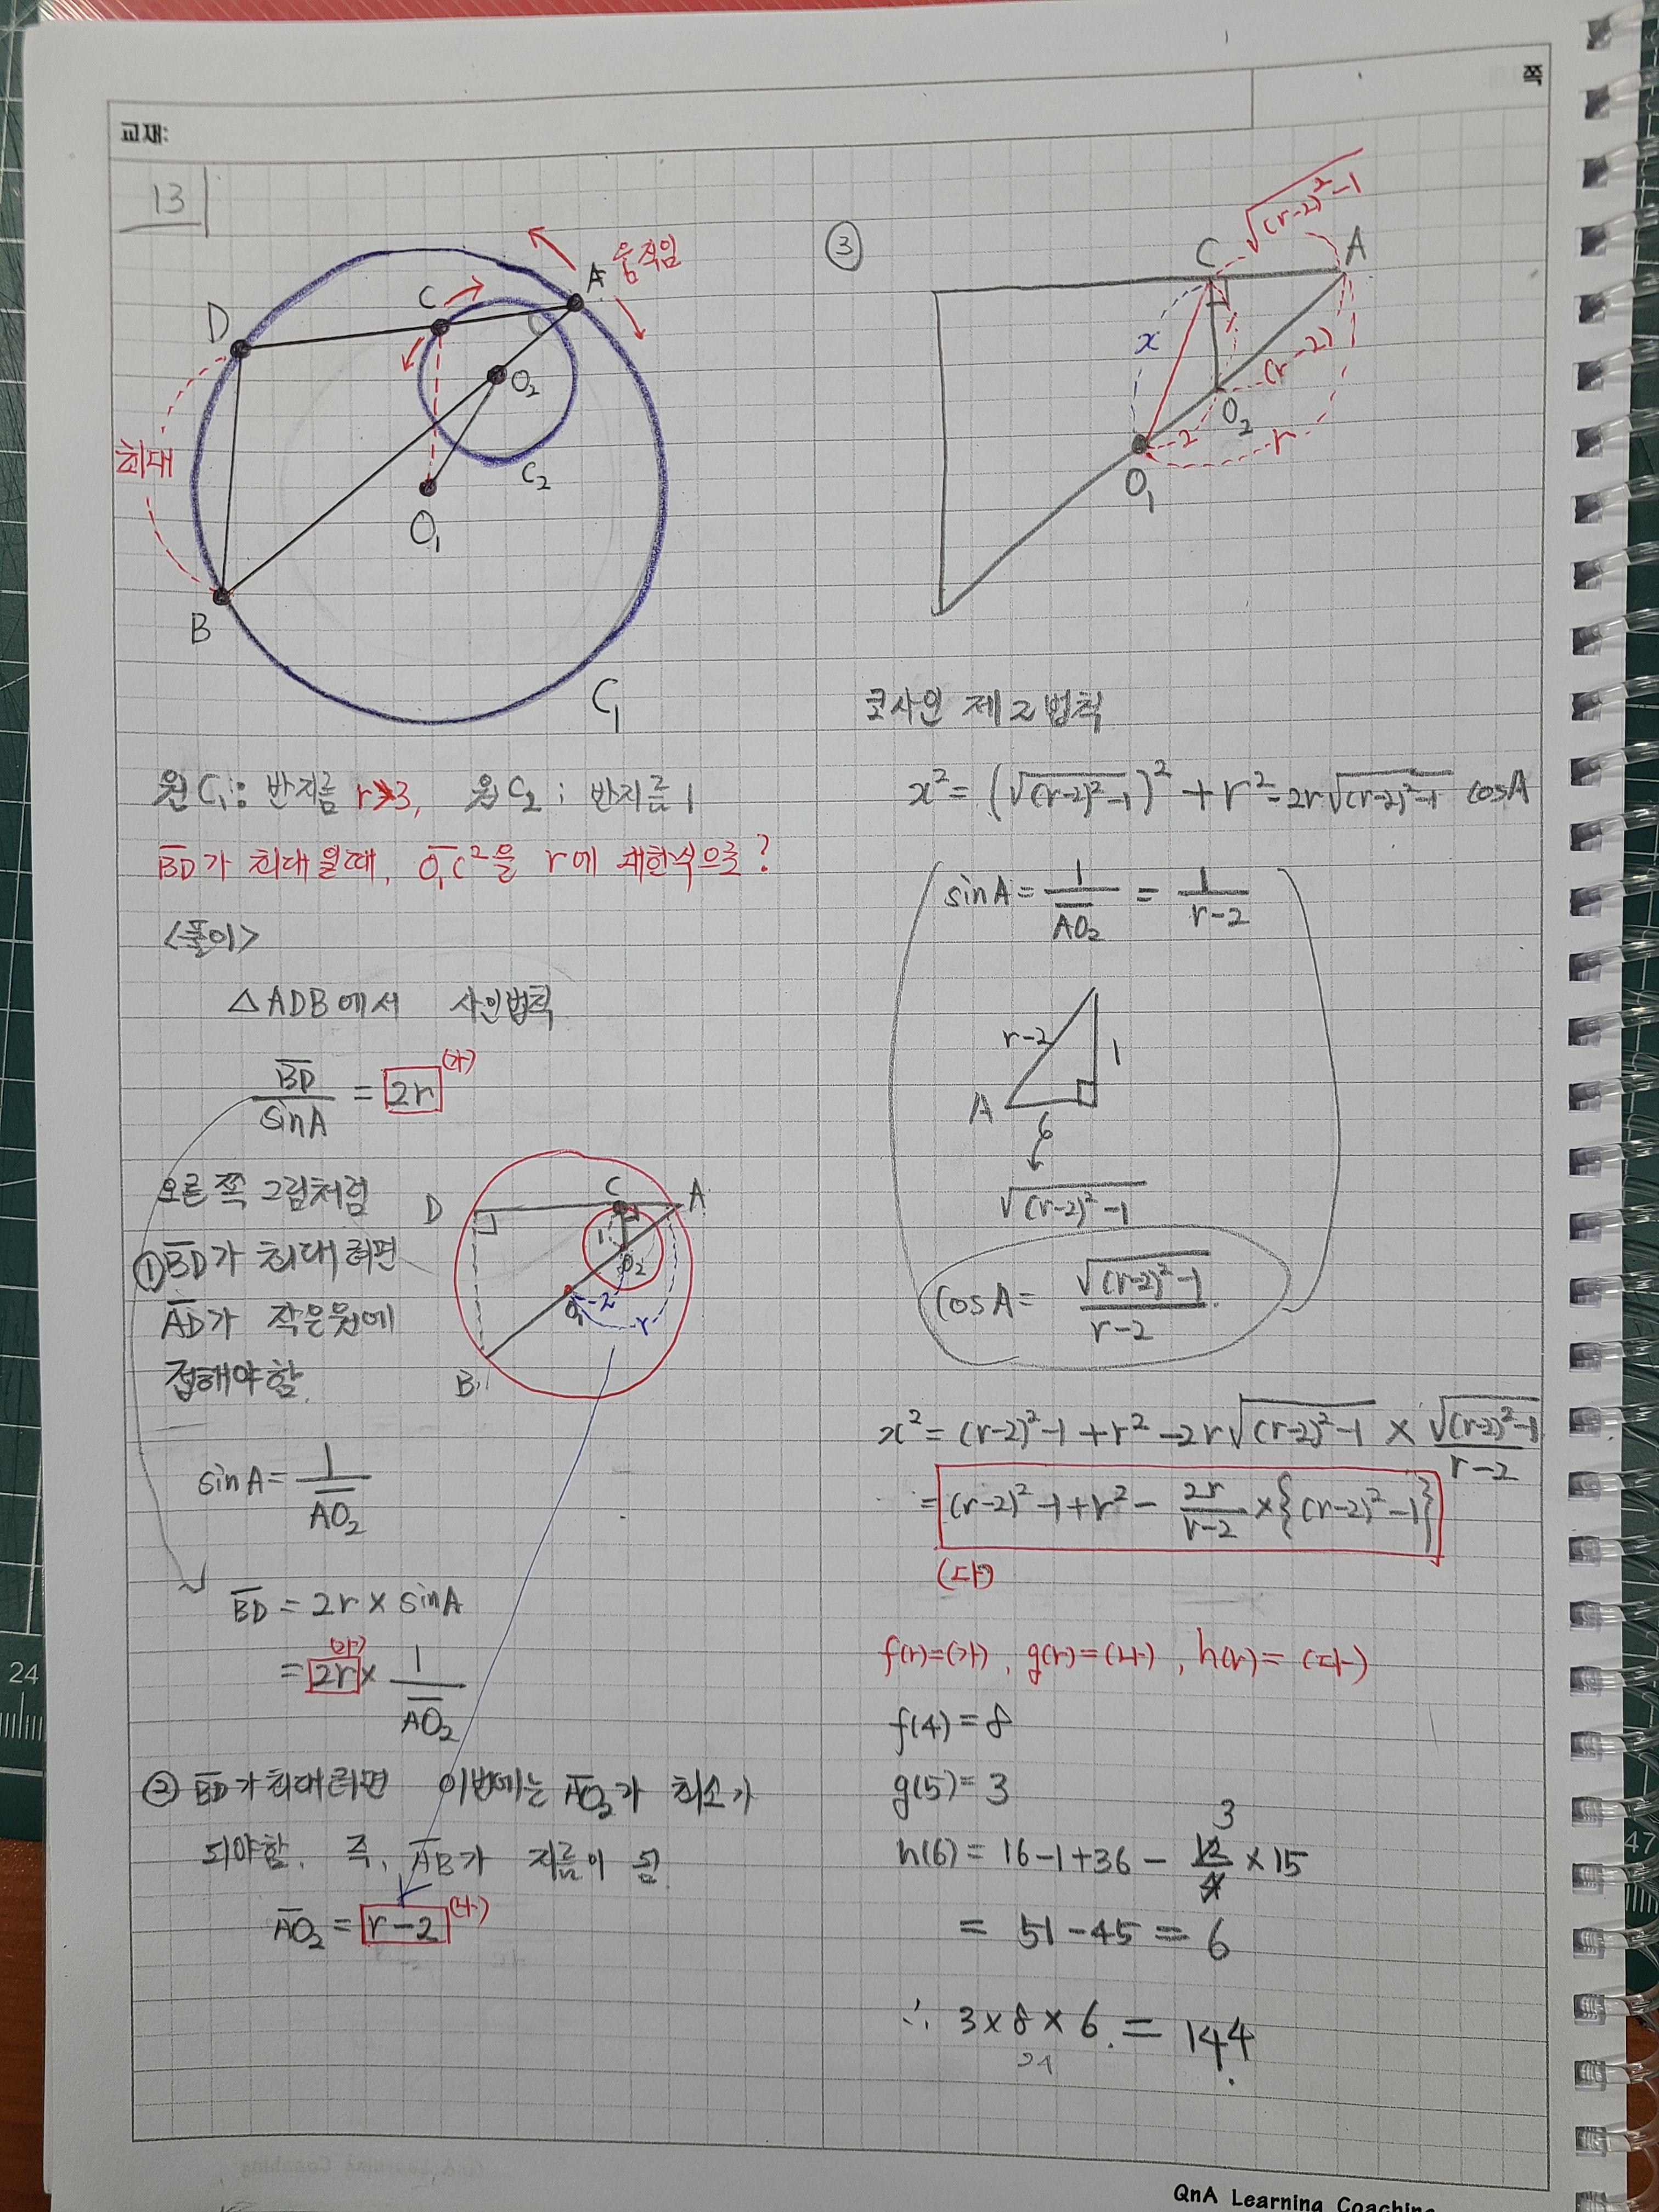 쪽
교재:
13
A 움직임
C
D
O₂
C₂
O₁
최대
B
C₁
원 C₁: 반지름 r>3, 원 C₂ : 반지름 1
BD가 최대일때, O₁C²을 r에 대한식으로?
<풀이>
△ADB에서 사인법칙
BD/sinA = 2r (가)
오른쪽 그림처럼
① BD가 최대하려면
AD가 작은원에
접해야함.
D C A
1
O₂
O₁ 2
r
B
sinA = 1/AO₂
BD = 2r × sinA
= 2r (가) × 1/AO₂
② BD가 최대하려면 이번에는 AO₂가 최소가
되야함. 즉, AB가 지름이 됨.
AO₂ = r-2 (나)
③
√((r-2)²-1)
C A
x 1 (r-2)
O₂
2 r
O₁
코사인 제2법칙
x² = (√((r-2)²-1))² + r² - 2r√((r-2)²-1) cosA
sinA = 1/AO₂ = 1/(r-2)
r-2 1
A
√((r-2)²-1)
cosA = √((r-2)²-1)/(r-2)
x² = (r-2)²-1 + r² - 2r√((r-2)²-1) × √((r-2)²-1)/(r-2)
= (r-2)²-1+r² - 2r/(r-2) × {(r-2)²-1}
(다)
f(r)=(가), g(r)=(나), h(r)=(다)
f(4) = 8
g(5) = 3
3
h(6) = 16-1+36 - 12/4 × 15
= 51-45 = 6
∴ 3×8×6 = 144
24
24
47
QnA Learning Coaching